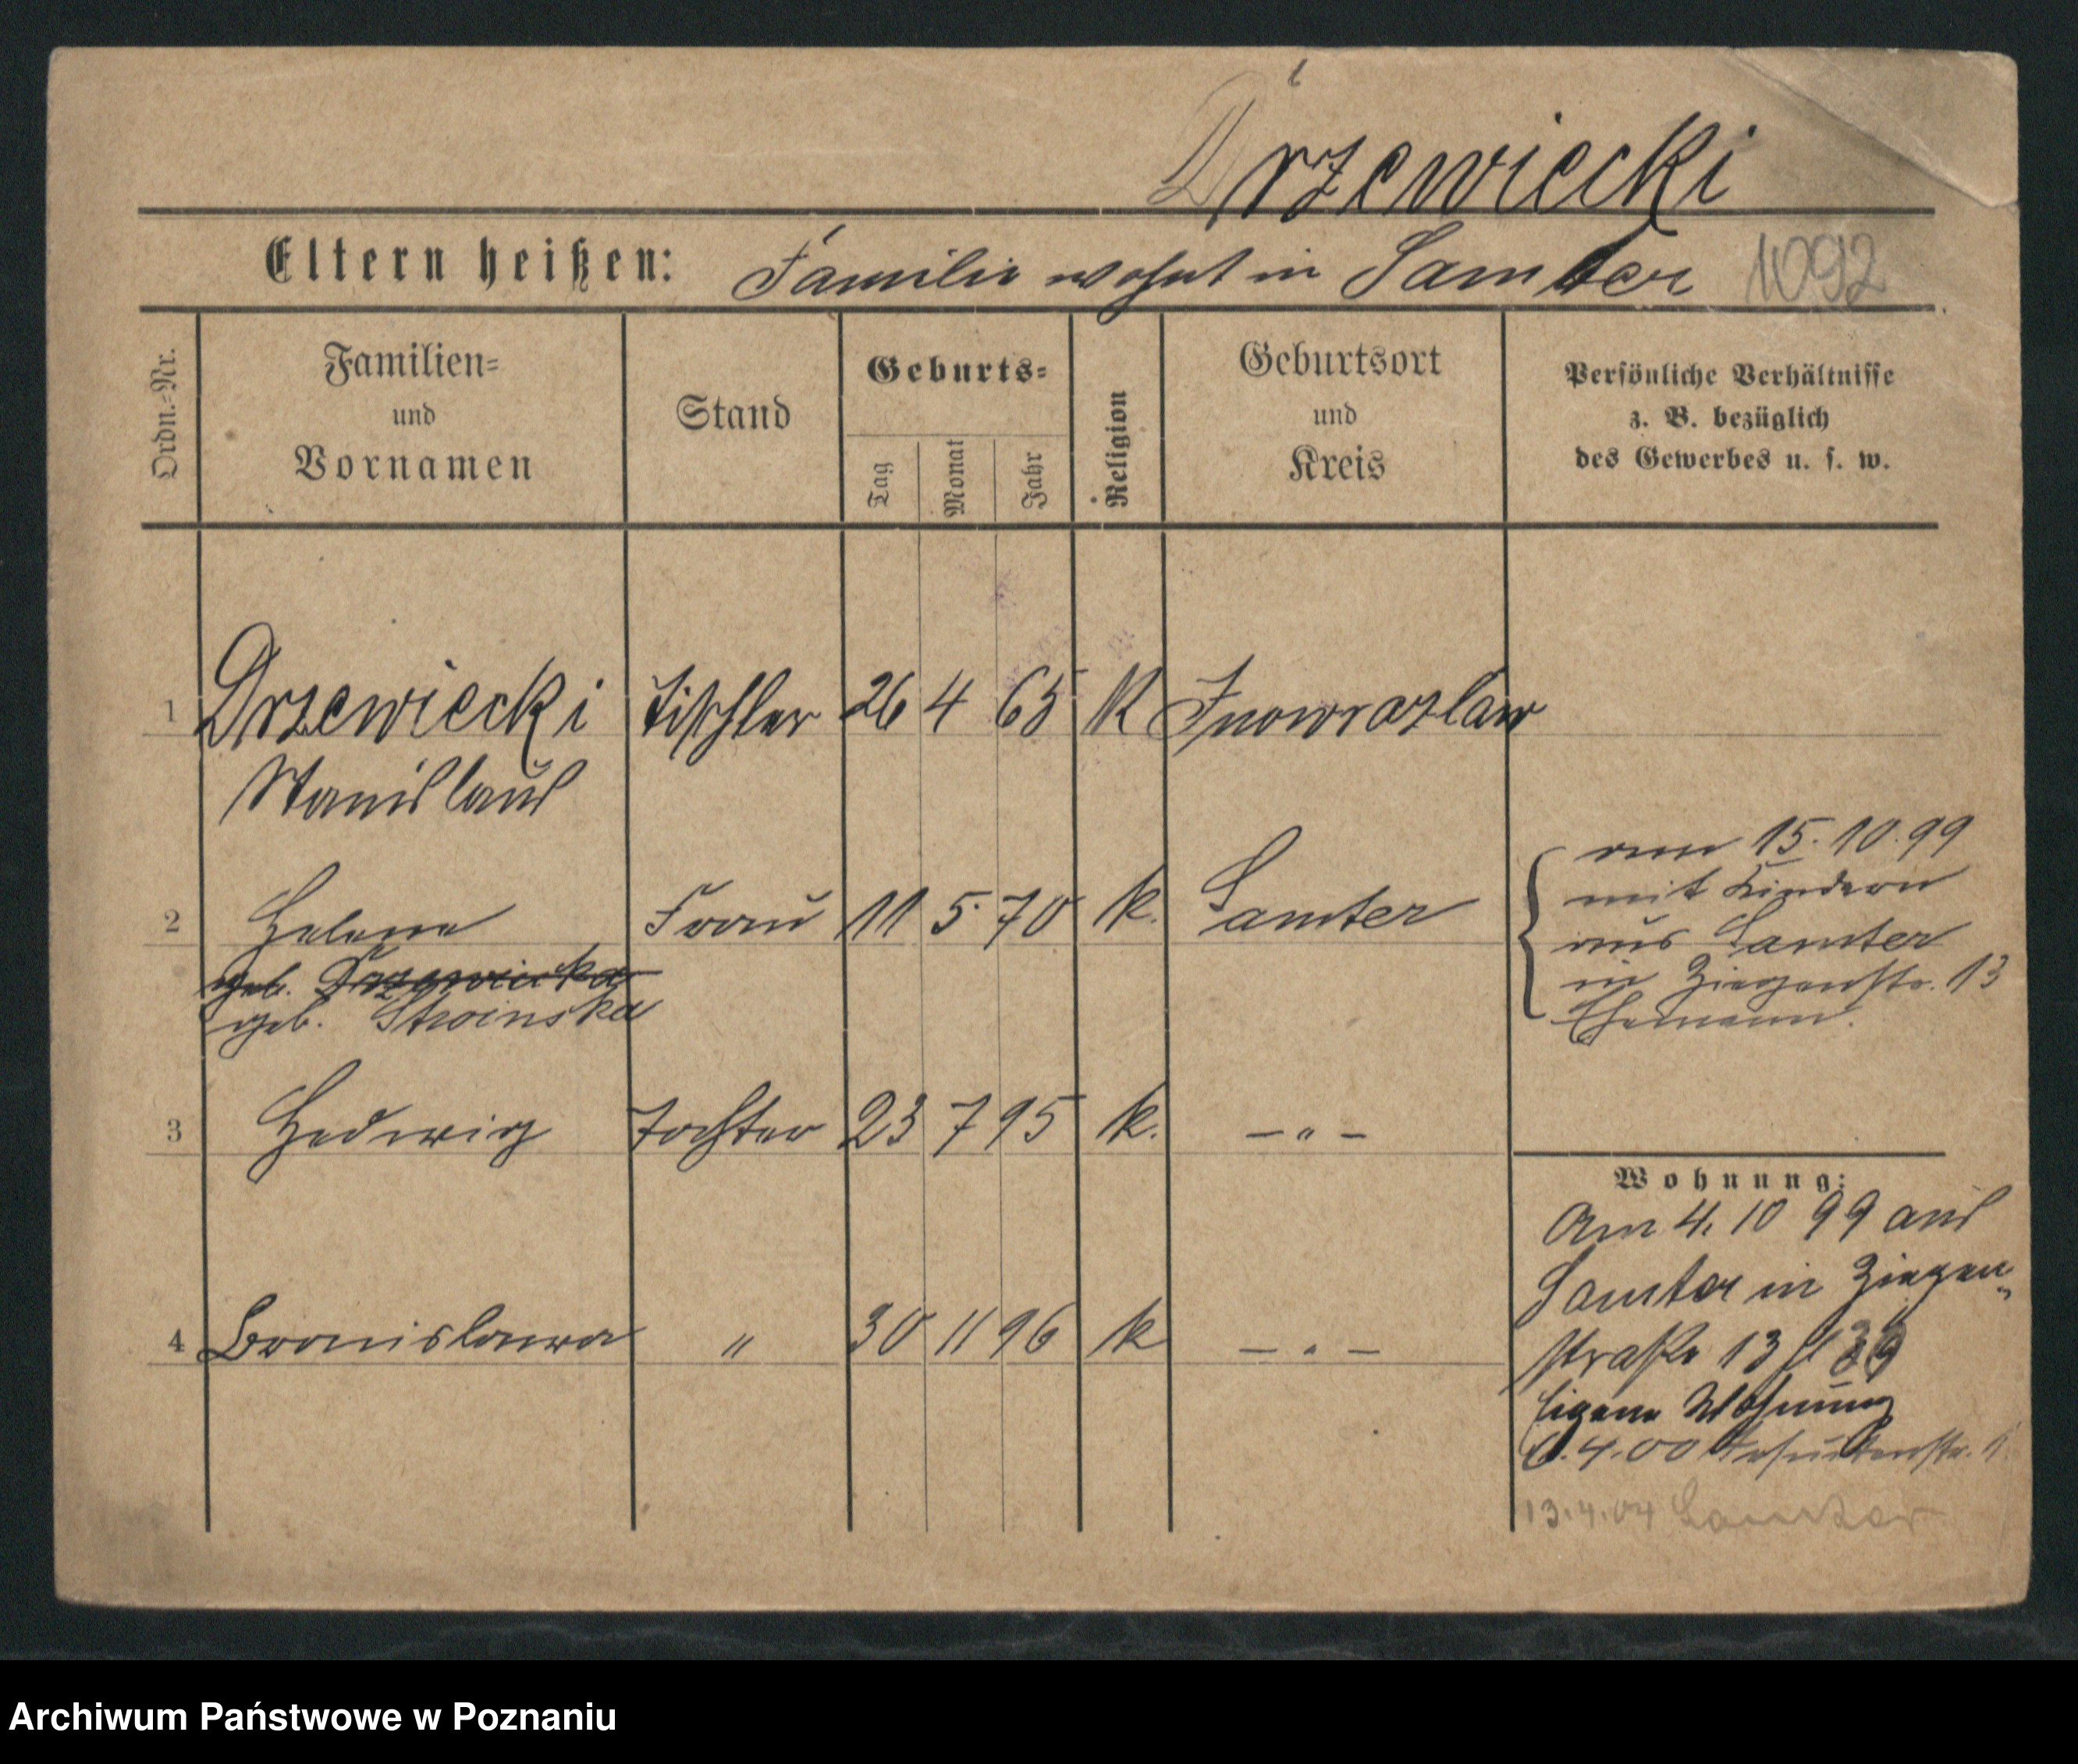 Drzewiecki
Eltern heißen: Familie wohnt in Samter 1092
Ordn.-Nr.
Familien-
und
Vornamen
Stand
Geburts-
Tag
Monat
Jahr
Religion
Geburtsort
und
Kreis
Persönliche Verhältnisse
z. B. bezüglich
des Gewerbes u. s. w.
1 Drzewiecki Tischler 26 4 65 K Inowrazlaw
Stanislaus
2 Helene Frau 11 5 70 k. Samter
geb. Drzewiecka
geb. Stroinska
am 15.10.99
mit Kindern
aus Samter
in Ziegenstr. 13
Ehemann.
3 Hedwig Tochter 23 7 95 k. — " —
4 Bronislawa " 30 11 96 k — " —
Wohnung:
Am 4. 10 99 aus
Samter in Ziegen-
straße 13
Eigene Wohnung
6.4.00 1
13.4.04 Samter
Archiwum Państwowe w Poznaniu